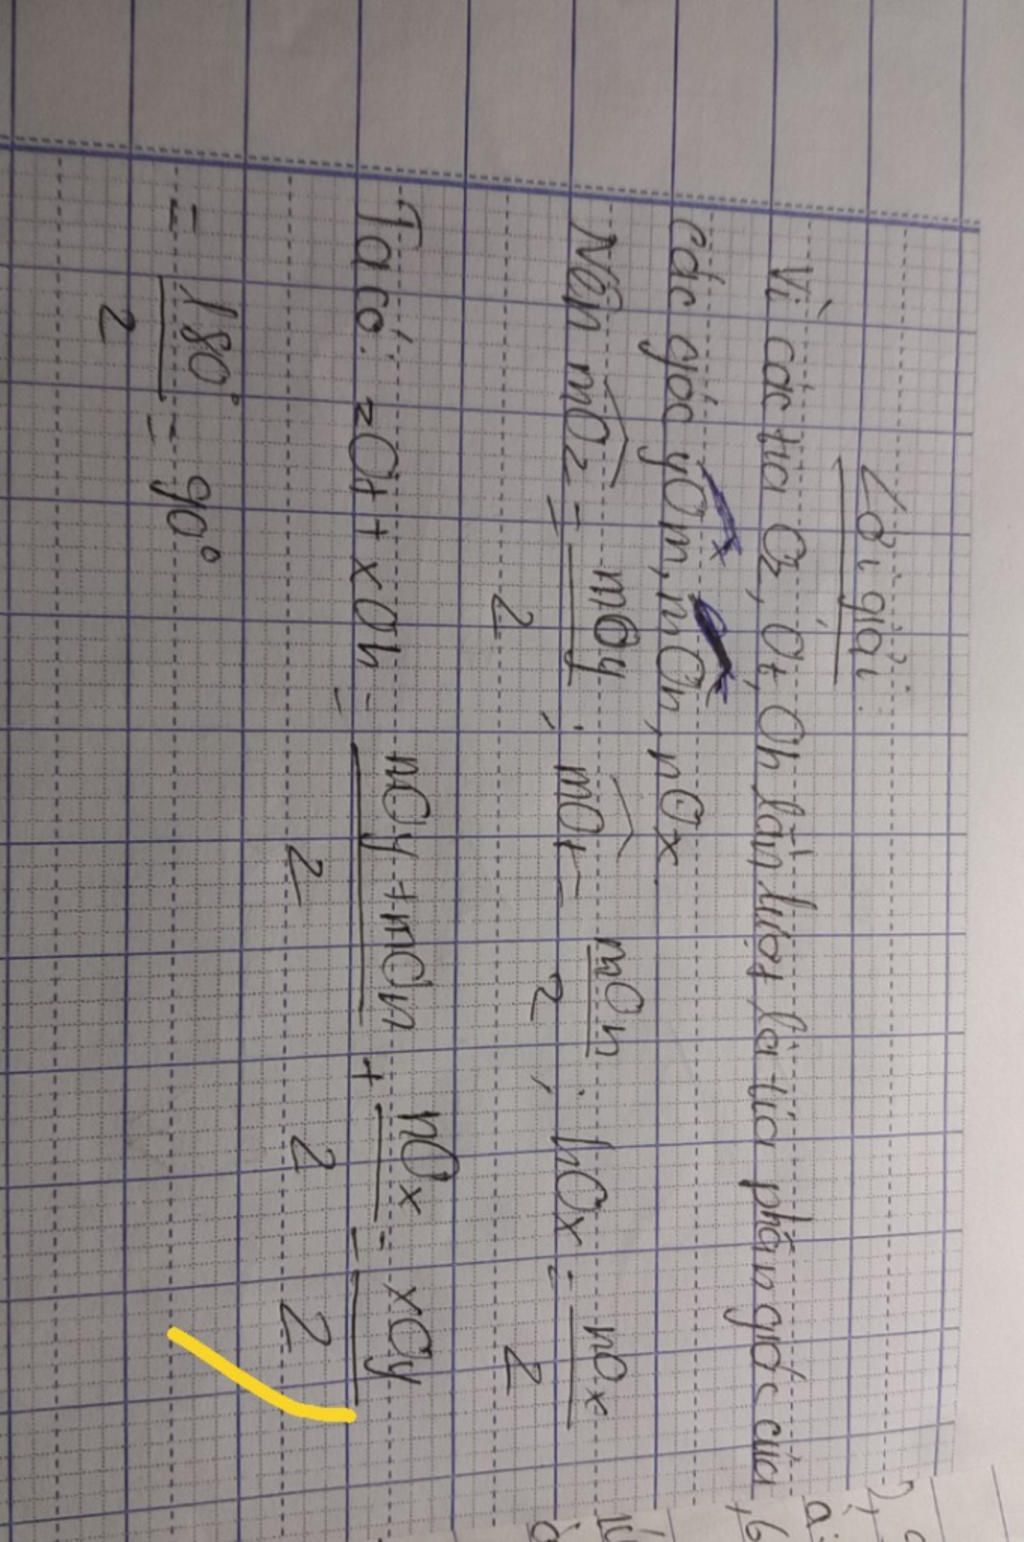 Lời giải:
Vì các tia Oz, Ot, Oh lần lượt là tia phân giác của
các góc yOm, mOn, nOx
Nên mOz = mOy/2 ; mOt = mOn/2 ; hOx = nOx/2
Ta có: zOt + xOh = mOy + mOn/2 + nOx/2 = xOy/2
= 180°/2 = 90°